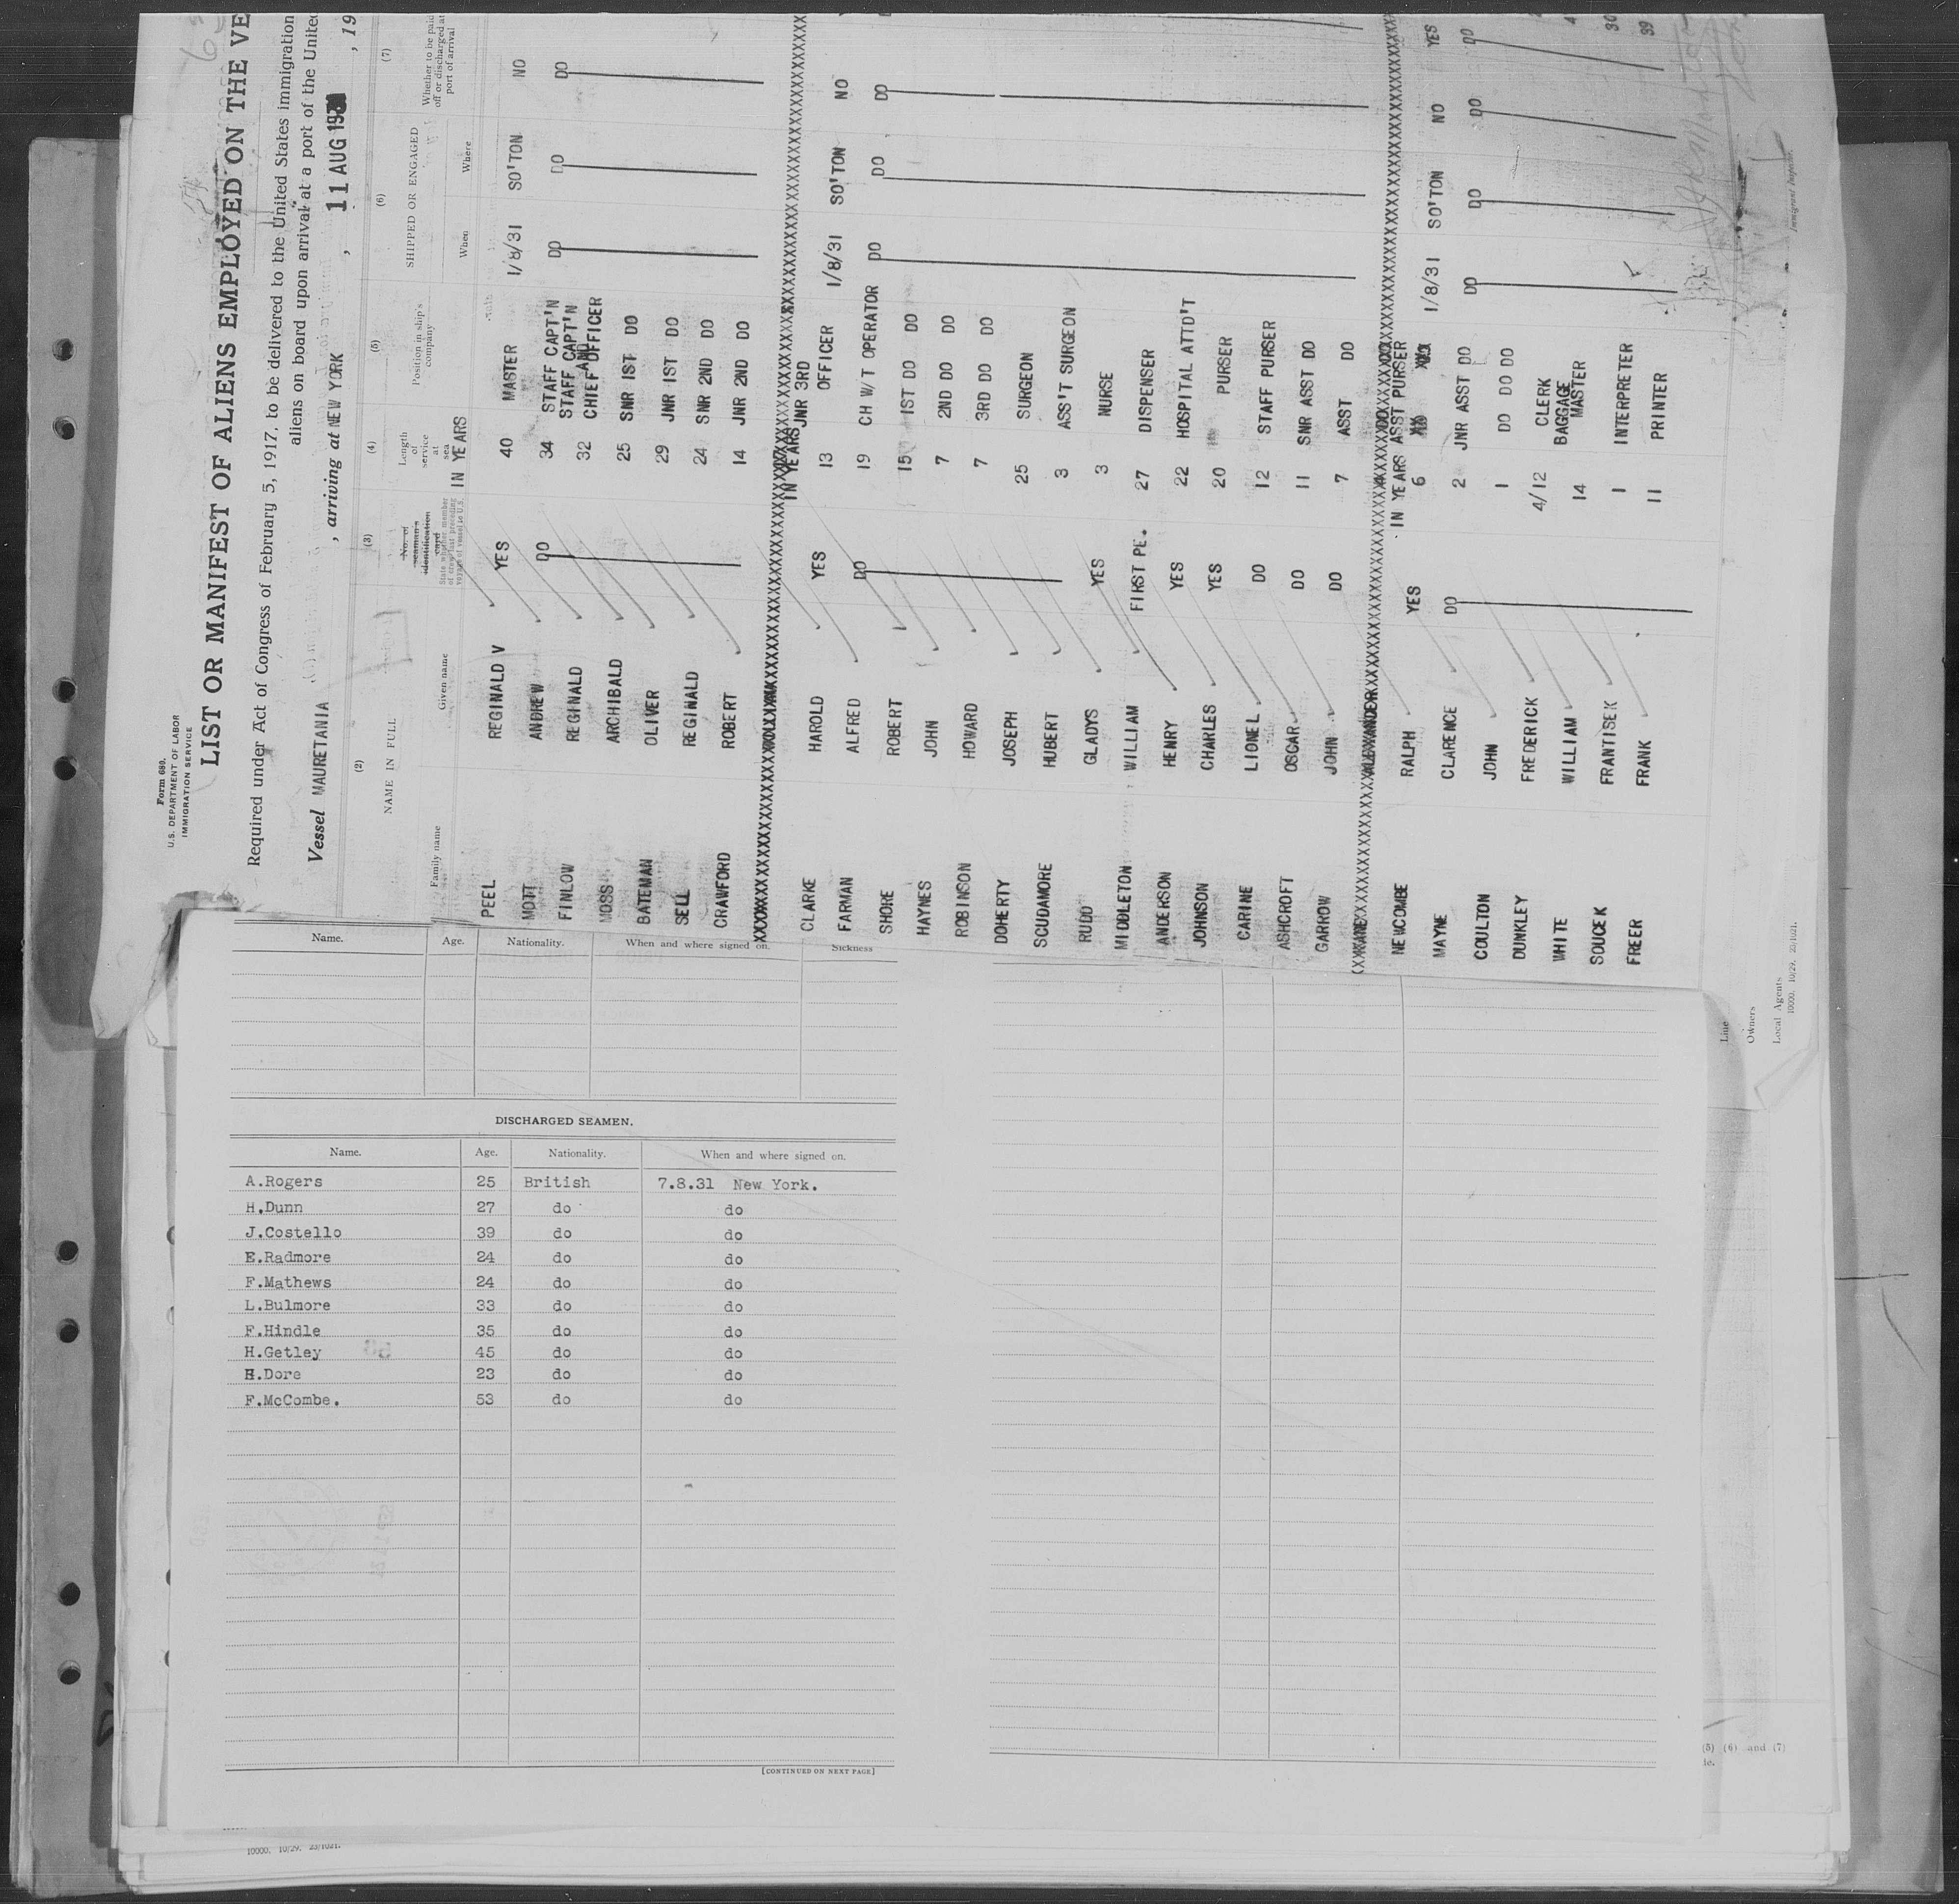 Form 680.
U.S. DEPARTMENT OF LABOR
IMMIGRATION SERVICE
LIST OR MANIFEST OF ALIENS EMPLOYED ON THE VE
Required under Act of Congress of February 5, 1917, to be delivered to the United States immigration
aliens on board upon arrival at a port of the United
Vessel MAURETANIA , arriving at NEW YORK , 11 AUG 1931 , 19
(2) (3) (4) (5) (6) (7)
NAME IN FULL
Family name Given name
No. of seaman's identification card
State whether member of crew last preceding voyage of vessel to U.S.
Length of service at sea
IN YEARS
Position in ship's company
SHIPPED OR ENGAGED
When Where
Whether to be paid off or discharged at port of arrival
PEEL REGINALD V YES 40 MASTER 1/8/31 SO'TON NO
MOTT ANDREW DO 34 STAFF CAPT'N DO DO DO
FINLOW REGINALD 32 STAFF CAPT'N AND CHIEF OFFICER
MOSS ARCHIBALD 25 SNR 1ST DO
BATEMAN OLIVER 29 JNR 1ST DO
SELL REGINALD 24 SNR 2ND DO
CRAWFORD ROBERT 14 JNR 2ND DO
IN YEARS JNR 3RD
CLARKE HAROLD YES 13 OFFICER 1/8/31 SO'TON NO
FARMAN ALFRED DO 19 CH W/T OPERATOR DO DO DO
SHORE ROBERT 15 1ST DO DO
HAYNES JOHN 7 2ND DO DO
ROBINSON HOWARD 7 3RD DO DO
DOHERTY JOSEPH 25 SURGEON
SCUDAMORE HUBERT 3 ASS'T SURGEON
RUDD GLADYS YES 3 NURSE
MIDDLETON WILLIAM FIRST PE. 27 DISPENSER
ANDERSON HENRY YES 22 HOSPITAL ATTD'T
JOHNSON CHARLES YES 20 PURSER
CARINE LIONEL DO 12 STAFF PURSER
ASHCROFT OSCAR DO 11 SNR ASST DO
GARROW JOHN DO 7 ASST DO
IN YEARS ASST PURSER
NEWCOMBE RALPH YES 6 1/8/31 SO'TON NO YES
MAYNE CLARENCE DO 2 JNR ASST DO DO DO DO DO
COULTON JOHN 1 DO DO DO
DUNKLEY FREDERICK 4/12 CLERK
WHITE WILLIAM 14 BAGGAGE MASTER
SOUCEK FRANTISEK 1 INTERPRETER 30
FREER FRANK 11 PRINTER 39
Immigrant Inspector.
Line
Owners
Local Agents
10000. 10/29. 23/1021.
Name. Age. Nationality. When and where signed on. Sickness
DISCHARGED SEAMEN.
Name. Age. Nationality. When and where signed on.
A.Rogers 25 British 7.8.31 New York.
H.Dunn 27 do do
J.Costello 39 do do
E.Radmore 24 do do
F.Mathews 24 do do
L.Bulmore 33 do do
F.Hindle 35 do do
H.Getley 45 do do
H.Dore 23 do do
F.McCombe. 53 do do
[CONTINUED ON NEXT PAGE]
(5) (6) and (7)
10000. 10/29. 23/1021.